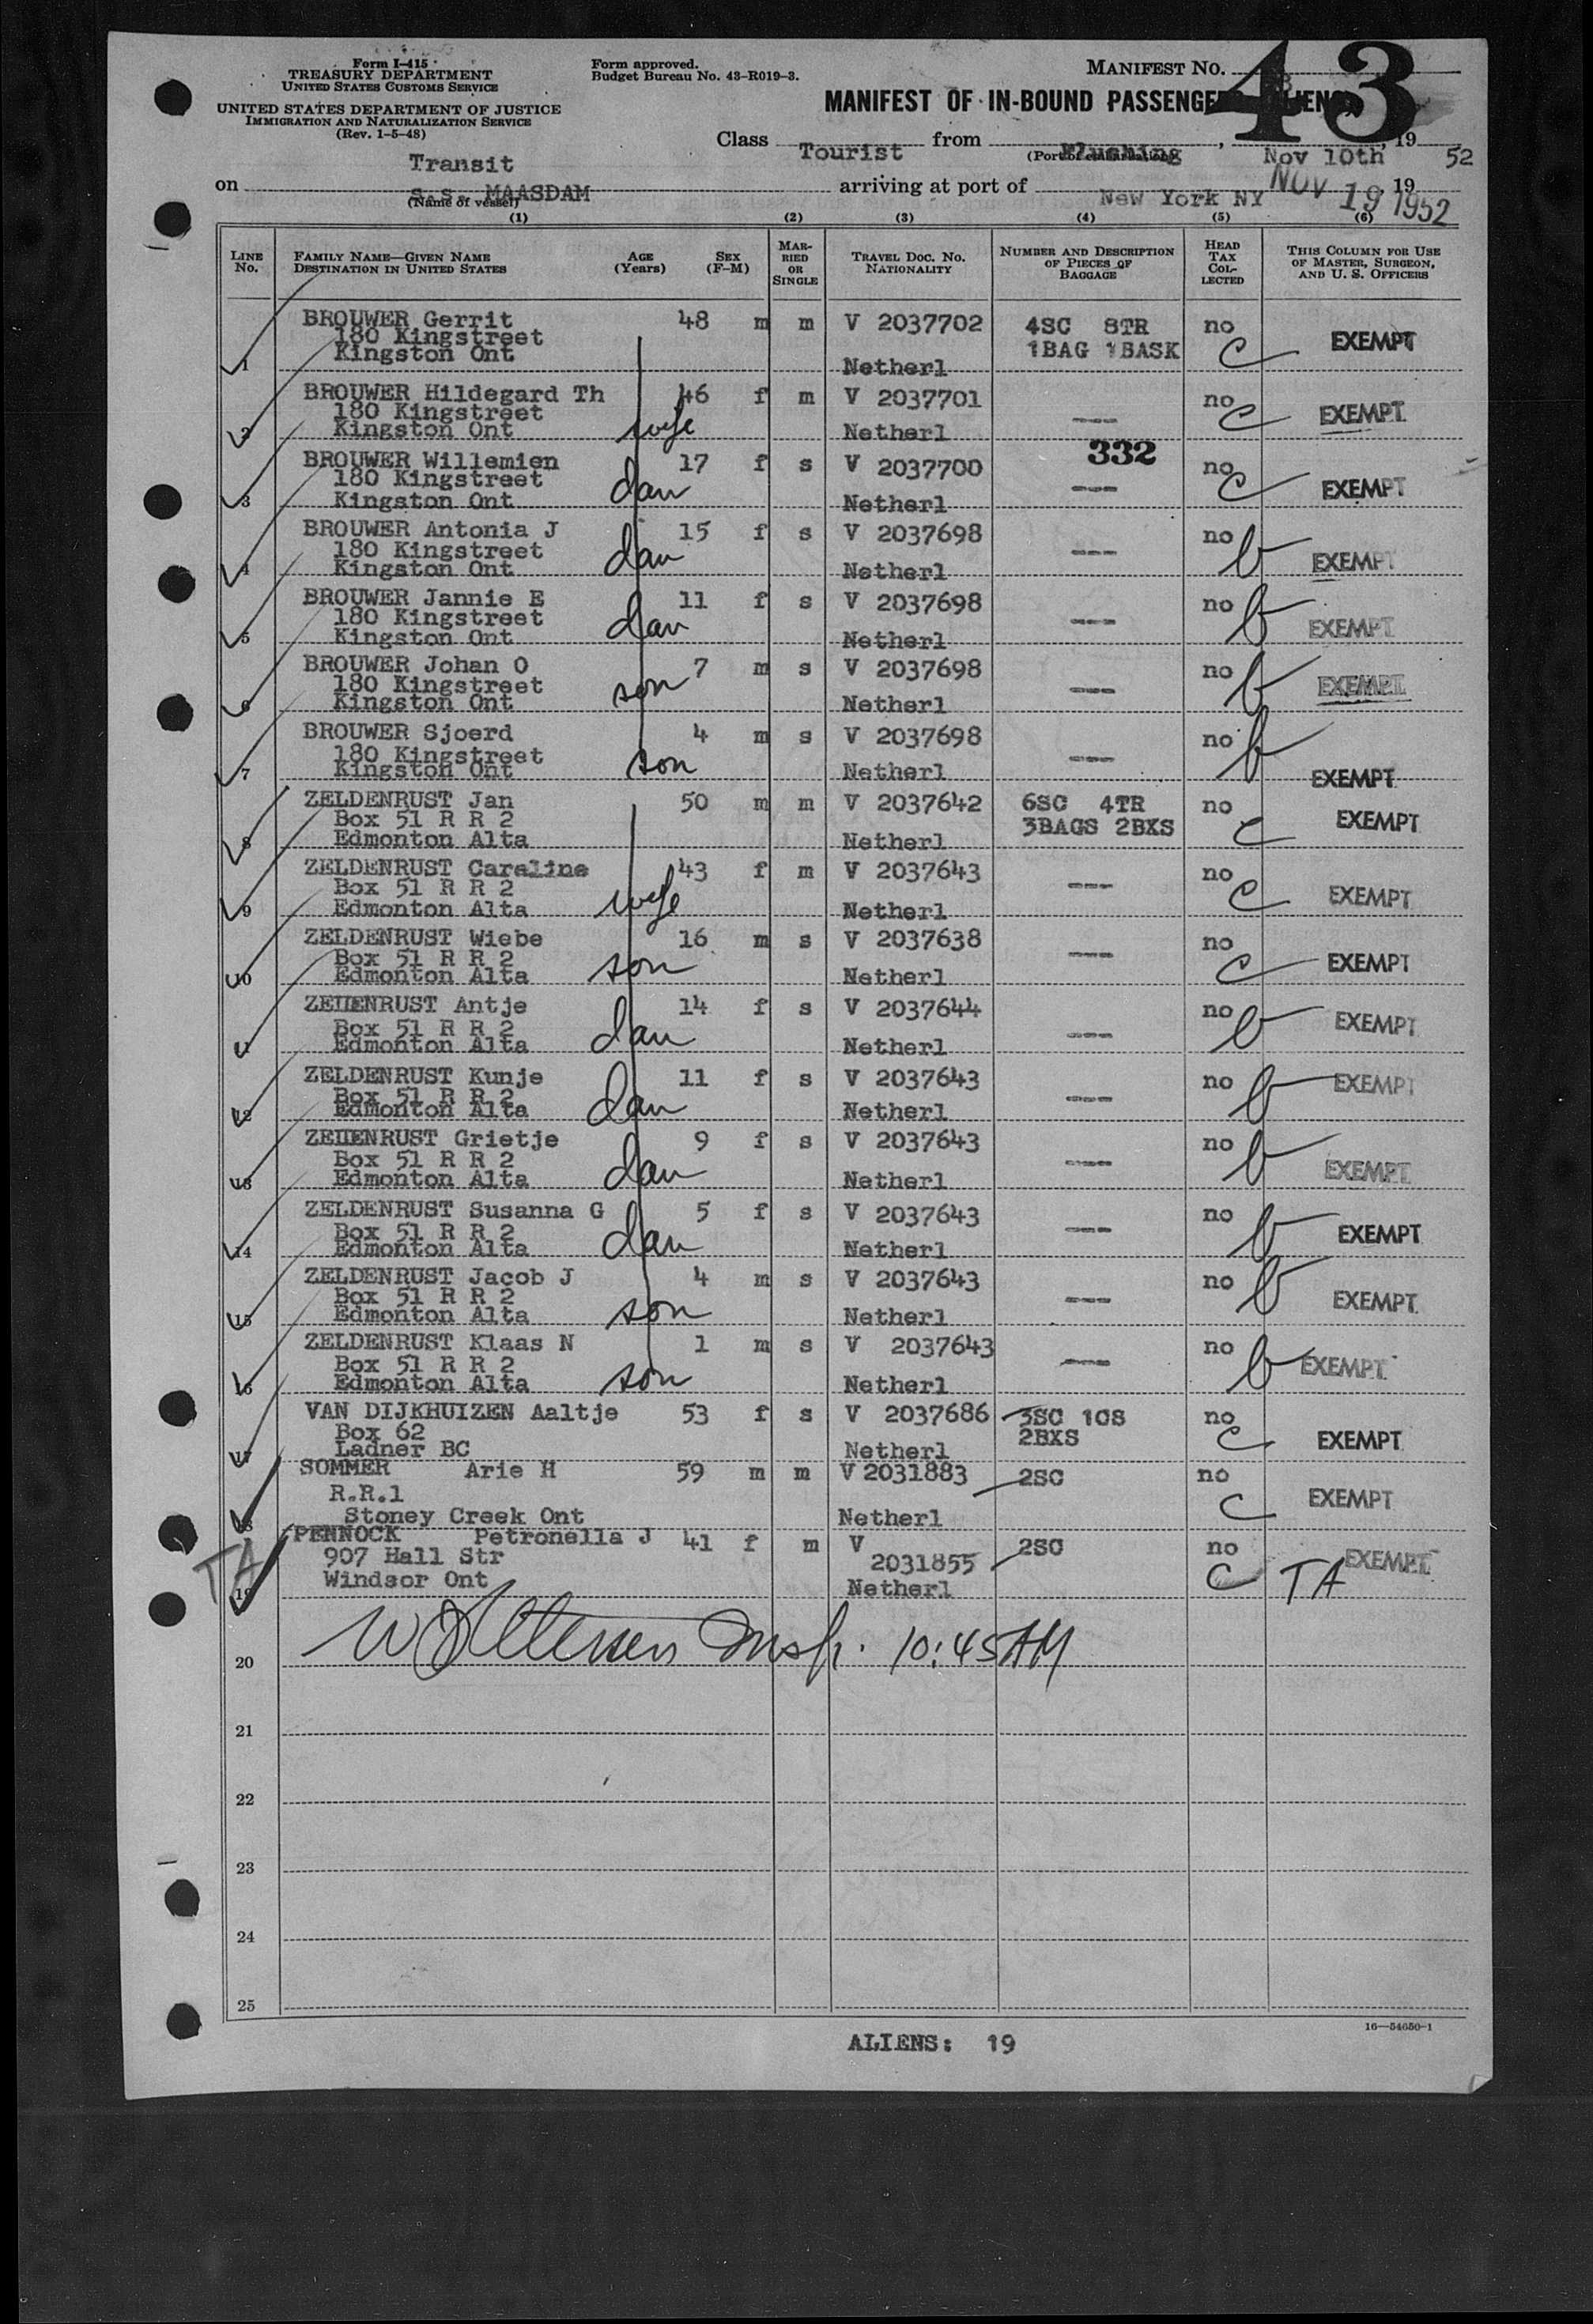 Form I-415
TREASURY DEPARTMENT
UNITED STATES CUSTOMS SERVICE
UNITED STATES DEPARTMENT OF JUSTICE
IMMIGRATION AND NATURALIZATION SERVICE
(Rev. 1-5-48)
Form approved.
Budget Bureau No. 43-R019-3.
MANIFEST NO. 43
MANIFEST OF IN-BOUND PASSENGERS
Class Tourist from Flushing, Nov 10th, 19 52
(Port of embarkation)
Transit
on s.s. MAASDAM arriving at port of New York NY NOV 19 1952, 19
(Name of vessel)
(1) (2) (3) (4) (5) (6)
LINE NO. FAMILY NAME—GIVEN NAME DESTINATION IN UNITED STATES AGE (Years) SEX (F-M) MAR-RIED OR SINGLE TRAVEL DOC. NO. NATIONALITY NUMBER AND DESCRIPTION OF PIECES OF BAGGAGE HEAD TAX COL-LECTED THIS COLUMN FOR USE OF MASTER, SURGEON, AND U. S. OFFICERS
BROUWER Gerrit 48 m m V 2037702 4SC 8TR no
180 Kingstreet 1BAG 1BASK c EXEMPT
1 Kingston Ont Netherl
BROUWER Hildegard Th 46 f m V 2037701 no
180 Kingstreet --- c EXEMPT
2 Kingston Ont wife Netherl
332
BROUWER Willemien 17 f s V 2037700 no
180 Kingstreet dau --- c EXEMPT
3 Kingston Ont Netherl
BROUWER Antonia J 15 f s V 2037698 no
180 Kingstreet dau --- b EXEMPT
4 Kingston Ont Netherl
BROUWER Jannie E 11 f s V 2037698 no
180 Kingstreet dau --- b EXEMPT
5 Kingston Ont Netherl
BROUWER Johan O 7 m s V 2037698 no
180 Kingstreet son --- b EXEMPT
6 Kingston Ont Netherl
BROUWER Sjoerd 4 m s V 2037698 no
180 Kingstreet son --- b
7 Kingston Ont Netherl EXEMPT
ZELDENRUST Jan 50 m m V 2037642 6SC 4TR no
Box 51 R R 2 3BAGS 2BXS c EXEMPT
8 Edmonton Alta Netherl
ZELDENRUST Caroline 43 f m V 2037643 no
Box 51 R R 2 --- c EXEMPT
9 Edmonton Alta wife Netherl
ZELDENRUST Wiebe 16 m s V 2037638 no
Box 51 R R 2 --- c EXEMPT
10 Edmonton Alta son Netherl
ZELDENRUST Antje 14 f s V 2037644 no
Box 51 R R 2 --- b EXEMPT
11 Edmonton Alta dau Netherl
ZELDENRUST Kunje 11 f s V 2037643 no
Box 51 R R 2 --- b EXEMPT
12 Edmonton Alta dau Netherl
ZELDENRUST Grietje 9 f s V 2037643 no
Box 51 R R 2 --- b EXEMPT
13 Edmonton Alta dau Netherl
ZELDENRUST Susanna G 5 f s V 2037643 no
Box 51 R R 2 --- b EXEMPT
14 Edmonton Alta dau Netherl
ZELDENRUST Jacob J 4 m s V 2037643 no
Box 51 R R 2 --- b EXEMPT
15 Edmonton Alta son Netherl
ZELDENRUST Klaas N 1 m s V 2037643 no
Box 51 R R 2 --- b EXEMPT
16 Edmonton Alta son Netherl
VAN DIJKHUIZEN Aaltje 53 f s V 2037686 3SC 1CS no
Box 62 2BXS c EXEMPT
17 Ladner BC Netherl
SOMMER Arie H 59 m m V 2031883 2SC no
R.R.1 c EXEMPT
18 Stoney Creek Ont Netherl
PENNOCK Petronella J 41 f m V 2SC no
907 Hall Str 2031855 EXEMPT
TA 19 Windsor Ont Netherl c TA
20 Insp. 10:45 AM
21
22
23
24
25
16—54650-1
ALIENS: 19